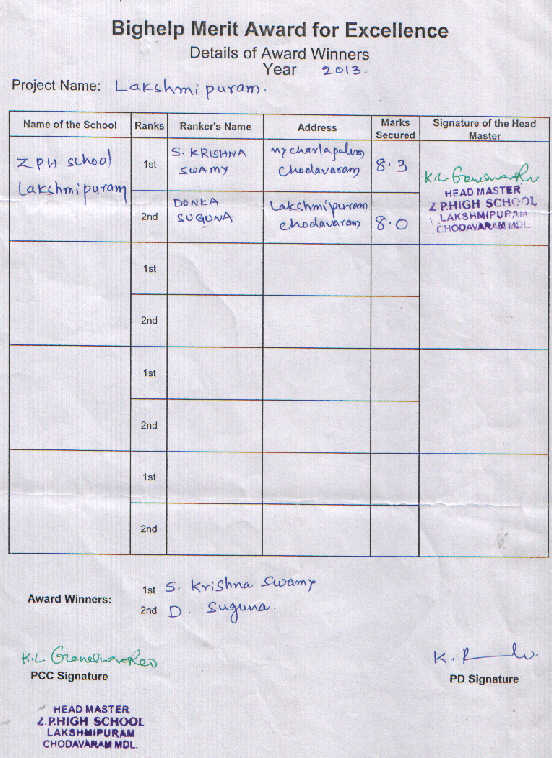 Bighelp Merit Award for Excellence
Details of Award Winners
Year 2013.
Project Name: Lakshmipuram.
Name of the School Ranks Ranker's Name Address Marks Secured Signature of the Head Master
ZPH school Lakshmipuram
1st S. KRISHNA SWAMY Chodavaram 8.3
2nd DONKA SUGUNA Lakshmipuram Chodavaram 8.0
HEAD MASTER
Z.P.HIGH SCHOOL
LAKSHMIPURAM
CHODAVARAM MDL.
1st
2nd
1st
2nd
1st
2nd
Award Winners:
1st S. Krishna Swamy
2nd D. Suguna.
PCC Signature
PD Signature
HEAD MASTER
Z.P.HIGH SCHOOL
LAKSHMIPURAM
CHODAVARAM MDL.